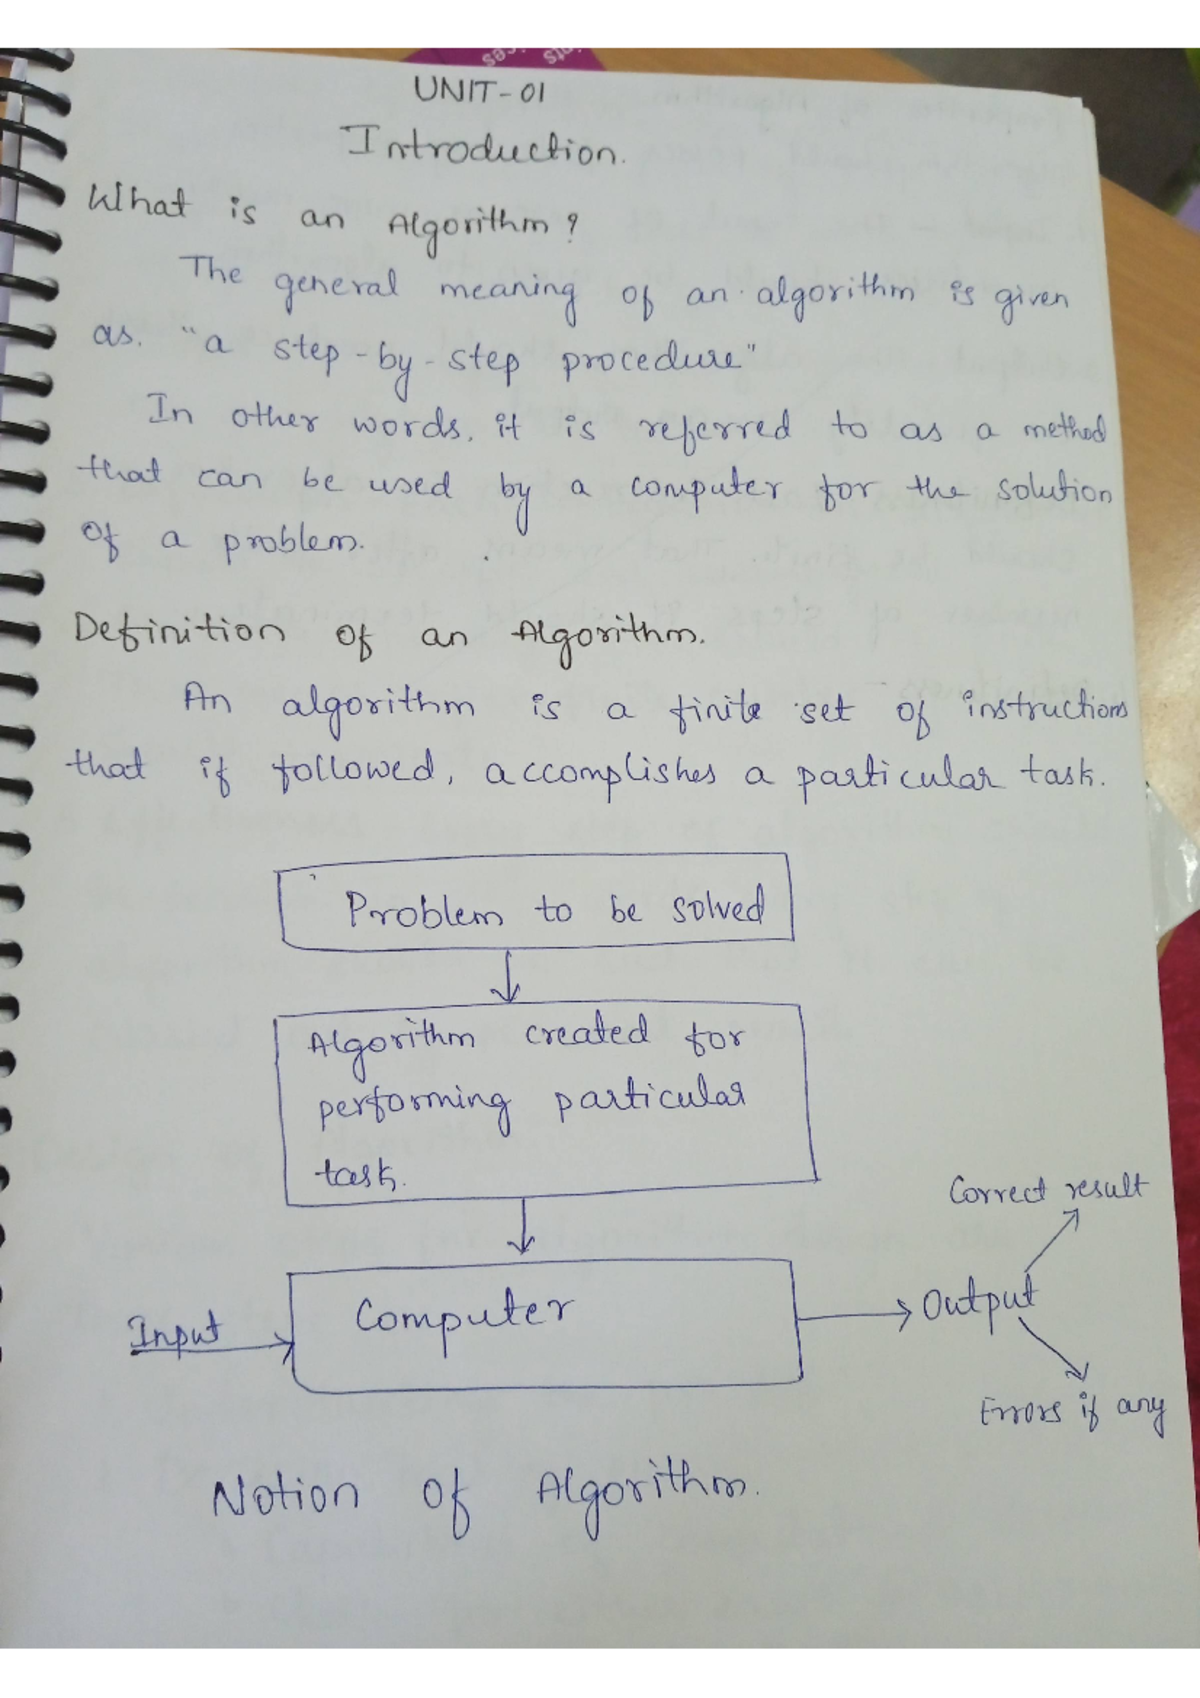 UNIT-01
Introduction.
What is an Algorithm?
The general meaning of an algorithm is given
as. "a step-by-step procedure"
In other words, it is referred to as a method
that can be used by a computer for the solution
of a problem.
Definition of an Algorithm.
An algorithm is a finite set of instructions
that if followed, accomplishes a particular task.
Problem to be solved
Algorithm created for
performing particular
task.
Correct result
Input
Computer
Output
Errors if any
Notion of Algorithm.